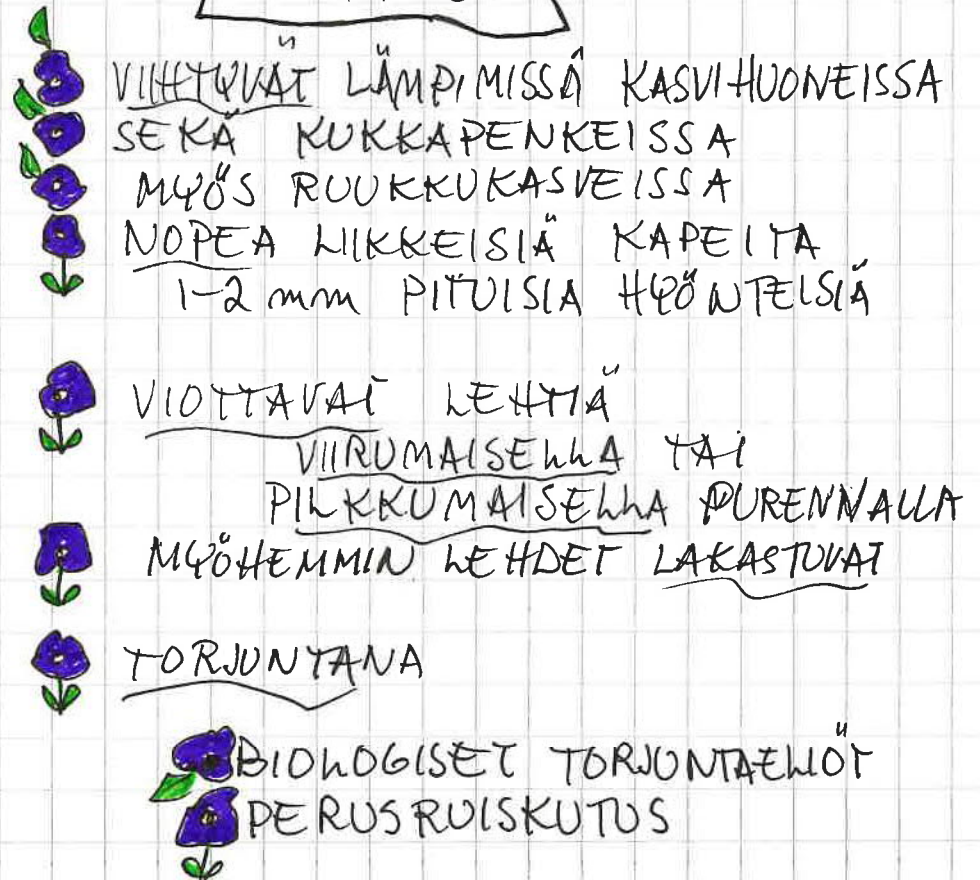 VIIHTYVÄT LÄMPIMISSÄ KASVIHUONEISSA
SEKÄ KUKKAPENKEISSA
MYÖS RUUKKUKASVEISSA
NOPEA LIIKKEISIÄ KAPEITA
1-2 mm PITUISIA HYÖNTEISIÄ
VIOTTAVAT LEHTIÄ
VIIRUMAISELLA TAI
PILKKUMAISELLA PURENNALLA
MYÖHEMMIN LEHDET LAKASTUVAT
TORJUNTANA
BIOLOGISET TORJUNTAELIÖT
PERUSRUISKUTUS